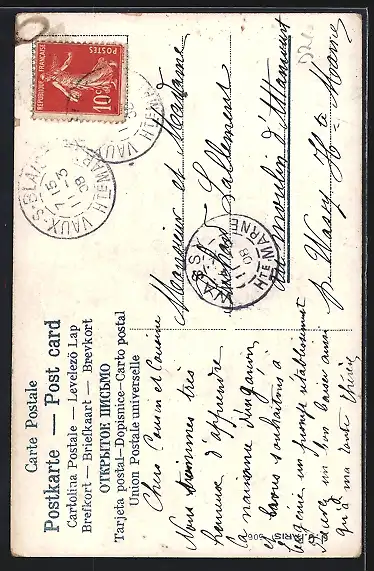 Carte Postale
Postkarte — Post card
Cartolina Postale — Levelező Lap
Brefkort — Briefkaart — Brevkort
ОТКРЫТОЕ ПИСЬМО
Tarjeta postal—Dopisnice—Carto postal
Union Postale universelle
REPUBLIQUE FRANÇAISE
POSTES
10c
VAUX-S-BLAISE
Hte MARNE
7 15
11-3
08
WASSY
Hte MARNE
11
08
Monsieur et Madame
Lallement
au moulin d'Attancourt
p. Wassy Hte Marne
Chers Cousin et Cousine
Nous sommes très
heureux d'apprendre
la naissance d'un garçon
et nous souhaitons à
Eugénie un prompt rétablissement
un bon baiser ainsi
qu'à ma tante